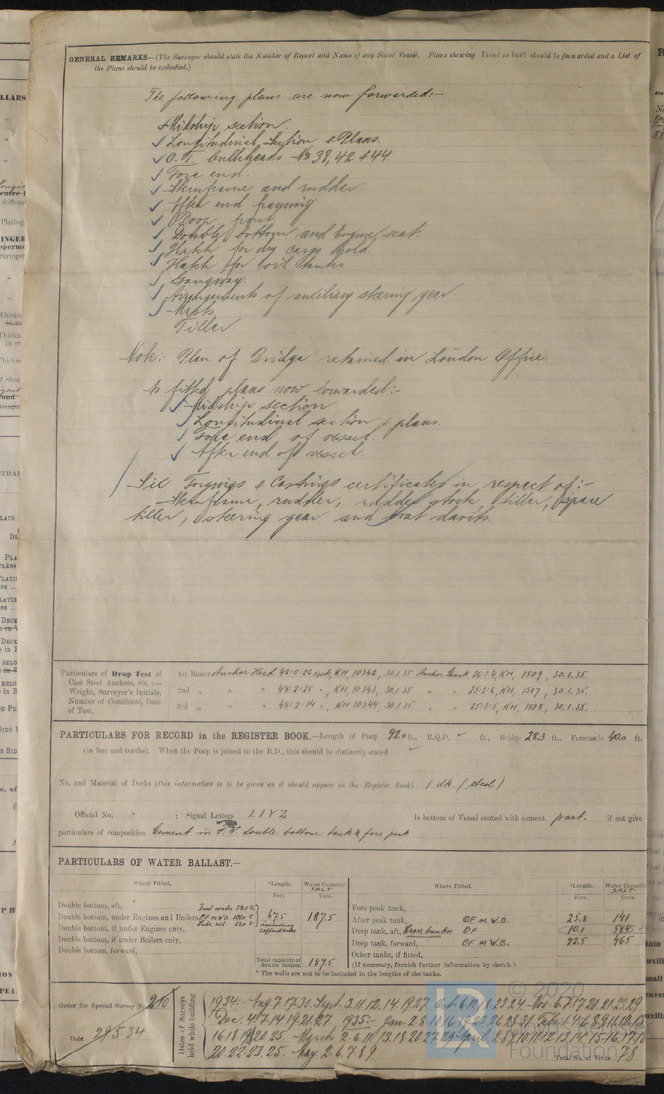 GENERAL REMARKS—(The Surveyor should state the Number of Report and Name of any Sister Vessel. Plans showing Vessel as built should be forwarded and a List of
the Plans should be embodied.)
The following plans are now forwarded:-
Midship section.
Longitudinal Section & Plans.
O.T. bulkheads No 38, 42 & 44.
Fore end.
Sternframe and rudder.
After end framing
Poop front
Double bottom and Engine seat.
Hatch for dry cargo hold.
Hatch for oil tanks
Gangway
Arrangements of auxiliary steering gear
Masts
Tiller
Note: Plan of Bridge retained in London Office.
As fitted plans now forwarded:-
Midship section
Longitudinal section & plans.
Fore end of vessel.
After end of vessel.
Forgings & Castings certificates in respect of:-
Sternframe, rudder, rudder stock, tiller, spare
tiller, steering gear and boat davits.
Particulars of Drop Test of
Cast Steel Anchors, viz.:—
Weight, Surveyor's Initials,
Number of Certificate, Date
of Test.
1st Bower Anchor Head 48-0-26 KH, 10342, 30.1.35 Anchor Shank 26.1.4, KH, 1509, 30.1.35.
2nd „ „ „ 48-2-25 „, KH, 10343, 30.1.35 „ „ 25-2-6, KH, 1507, 30.1.35.
3rd „ „ „ 48-2-14 „, KH 10344, 30.1.35 „ „ 25-3-5, KH, 1508, 30.1.35.
PARTICULARS FOR RECORD in the REGISTER BOOK.—Length of Poop 92.0 ft., R.Q.D. ft., Bridge 28.3 ft., Forecastle 40.0 ft.
(in feet and tenths). When the Poop is joined to the B.D., this should be distinctly stated
No. and Material of Decks (this information is to be given as it should appear in the Register Book) 1 dk (steel)
Official No. : Signal Letters Is bottom of Vessel coated with cement part. if not give
particulars of composition Cement in F.W. double bottom tank & fore peak
PARTICULARS OF WATER BALLAST.—
Where Fitted. *Length. Water Capacity. Where Fitted. *Length. Water Capacity.
Feet. Tons. Feet. Tons.
Double bottom, aft,
Double bottom, under Engines and Boilers, 67.5 187.5
including cofferdams
Double bottom, if under Engines only,
Double bottom, if under Boilers only,
Double bottom, forward,
Total capacity of double bottom 187.5
Fore peak tank,
After peak tank, OF or W.B. 25.8 141
Deep tank, aft, Cross bunker OF 10.1 584
Deep tank, forward, OF or W.B. 22.5 465
Other tanks, if fitted,
(If necessary, furnish further information by sketch.)
* The wells are not to be included in the lengths of the tanks.
Order for Special Survey No. 210
Date 29.5.34
Dates of Surveys
held while building
1934:- Aug 7.17.30. Sept. 3.11.12.14.19.27 Oct 6.11.18.23.24 - Nov. 6.7.17.20.21.23.29
Dec. 4.7.14.19.21.27 1935:- Jan 2.8.10.16.19.23.26.28.31 Feb 1.4.6.8.9.11.12.13
16.18.19.20.25. - March 2.6.11.13.18.20.27.29 - April
20.22.23.25. - May. 2.6.7.8.9
Total No. of Visits 78
© 2020
Foundation